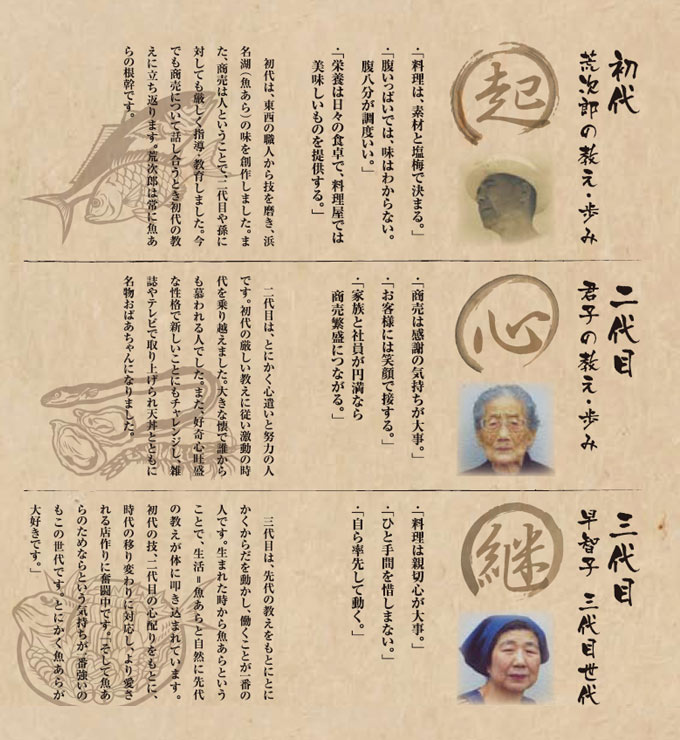 初代
荒次郎の教え・歩み
起
・「料理は、素材と塩梅で決まる。」
・「腹いっぱいでは、味はわからない。
腹八分が調度いい。」
・「栄養は日々の食卓で、料理屋では
美味しいものを提供する。」
初代は、東西の職人から技を磨き、浜
名湖(魚あら)の味を創作しました。ま
た、商売は人ということで、二代目や孫に
対しても厳しく指導・教育しました。今
でも商売について話し合うとき初代の教
えに立ち返ります。荒次郎は常に魚あ
らの根幹です。
二代目
君子の教え・歩み
心
・「商売は感謝の気持ちが大事。」
・「お客様には笑顔で接する。」
・「家族と社員が円満なら
商売繁盛につながる。」
二代目は、とにかく心遣いと努力の人
です。初代の厳しい教えに従い激動の時
代を乗り越えました。大きな懐で誰から
も慕われる人でした。また、好奇心旺盛
な性格で新しいことにもチャレンジし、雑
誌やテレビで取り上げられ天丼とともに
名物おばあちゃんになりました。
三代目
早智子 三代目世代
継
・「料理は親切心が大事。」
・「ひと手間を惜しまない。」
・「自ら率先して動く。」
三代目は、先代の教えをもとにとに
かくからだを動かし、働くことが一番の
人です。生まれた時から魚あらという
ことで、生活=魚あらと自然に先代
の教えが体に叩き込まれています。
初代の技、二代目の心配りをもとに、
時代の移り変わりに対応し、より愛さ
れる店作りに奮闘中です。「そして魚あ
らのためならという気持ちが一番強いの
もこの世代です。とにかく魚あらが
大好きです。」